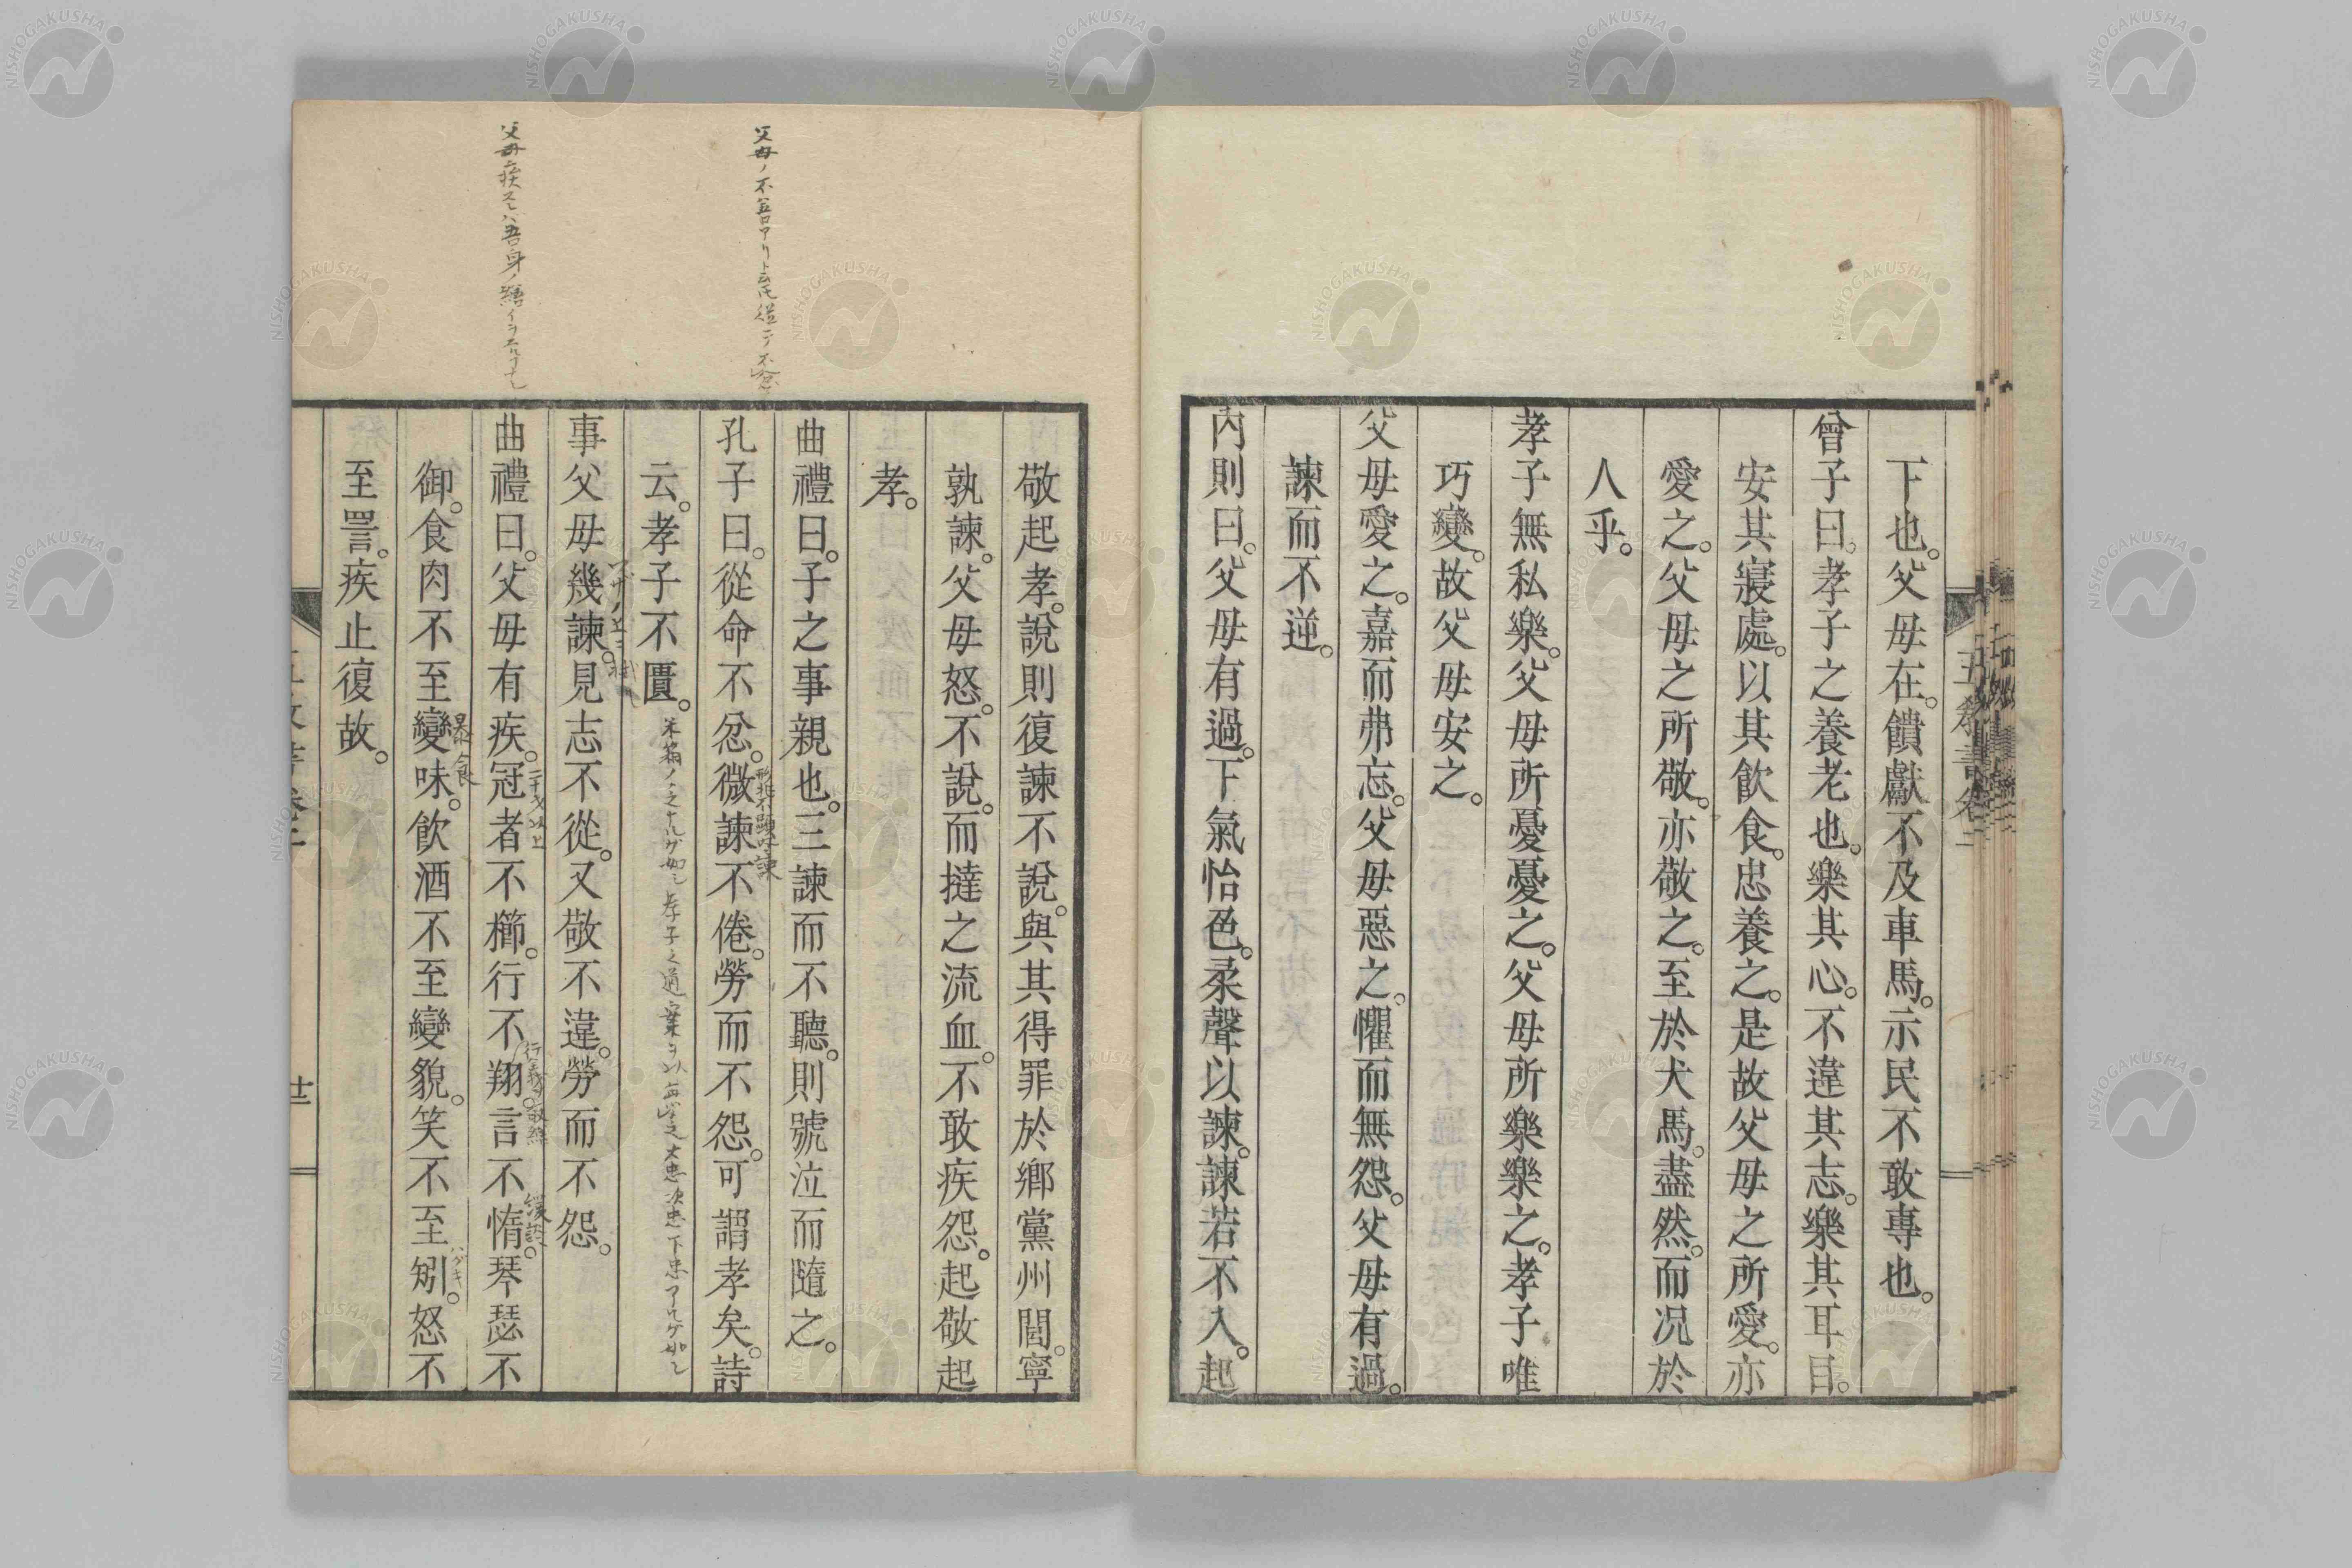 下也。父母在。饋獻不及車馬。示民不敢專也。
曾子曰。孝子之養老也。樂其心。不違其志。樂其耳目。
安其寢處。以其飲食。忠養之。是故父母之所愛。亦
愛之。父母之所敬。亦敬之。至於犬馬。盡然。而況於
人乎。
孝子無私樂。父母所憂憂之。父母所樂樂之。孝子唯
巧變。故父母安之。
父母愛之。嘉而弗忘。父母惡之。懼而無怨。父母有過。
諫而不逆。
內則曰。父母有過。下氣怡色。柔聲以諫。諫若不入。起
敬起孝。說則復諫不說。與其得罪於鄉黨州閭。寧
孰諫。父母怒。不說。而撻之流血。不敢疾怨。起敬起
孝。
曲禮曰。子之事親也。三諫而不聽。則號泣而隨之。
孔子曰。從命不忿。微諫不倦。勞而不怨。可謂孝矣。詩
云。孝子不匱。
事父母幾諫。見志不從。又敬不違。勞而不怨。
曲禮曰。父母有疾。冠者不櫛。行不翔。言不惰。琴瑟不
御。食肉不至變味。飲酒不至變貌。笑不至矧。怒不
至詈。疾止復故。
父母ノ不善アリト云
暴食
NISHOGAKUSHA